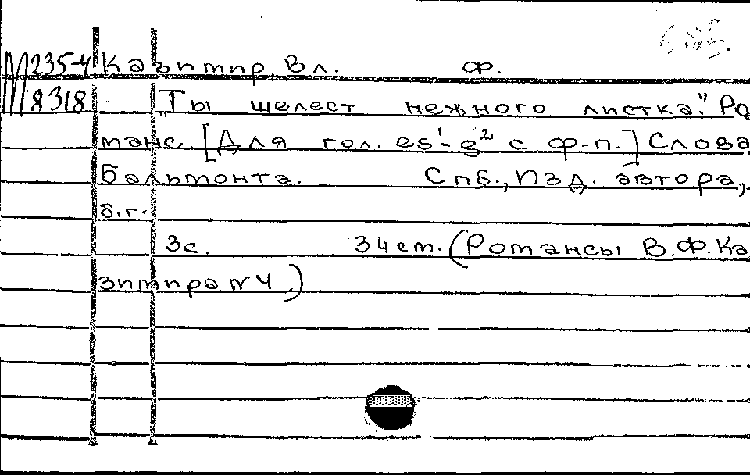 М 235-4 Казимир, Вл. Ф.
8318 "Ты шелест нежного листка". Ро
манс. [Для гол. es¹-g² с ф-п.] Слова
Бальмонта. Спб., Изд. автора,
б.г.
3с. 34см. (Романсы В.Ф.Ка
зимира № 4)